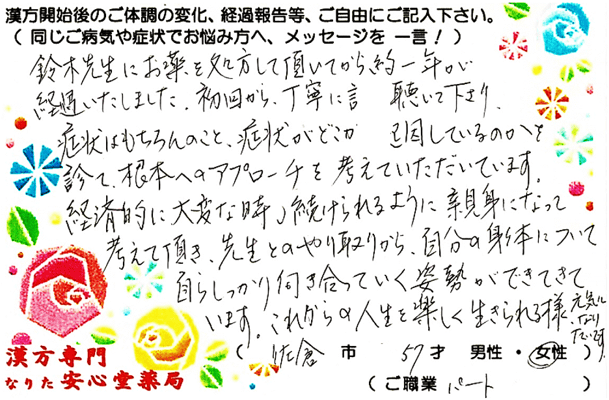 漢方開始後のご体調の変化、経過報告等、ご自由にご記入下さい。
( 同じご病気や症状でお悩み方へ、メッセージを 一言！ )
鈴木先生にお薬を処方して頂いてから約一年が
経過いたしました。初回から、丁寧に言 聴いて下さり、
症状はもちろんのこと、症状がどこか 因しているのかを
診て、根本へのアプローチを考えていただいています。
経済的に大変な時 続けられるように親身になって
考えて頂き、先生とのやり取りから、自分の身体について
自らしっかり向き合っていく姿勢ができてきて
います。これからの人生を楽しく生きられる様
元気に
なり
たいです。
( 佐倉 市 57才 男性・女性 )
漢方専門
なりた 安心堂薬局
( ご職業 パート )